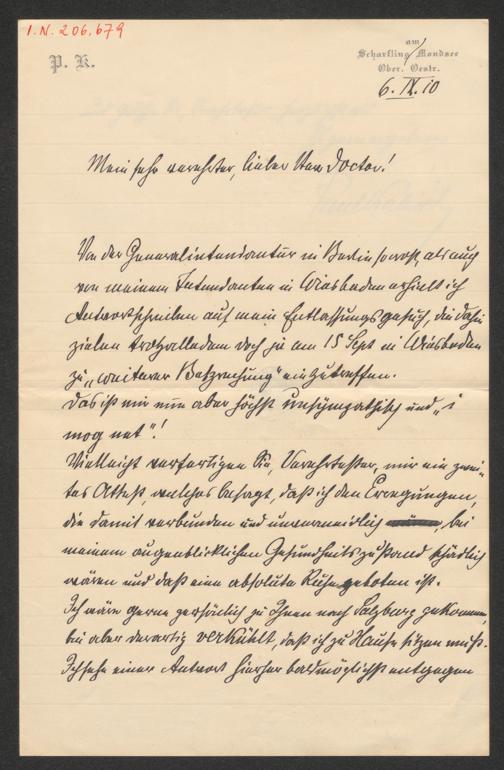 I.N. 206.679
P. K.
am
Scharfling / Mondsee
Ober. Oestr.
6. IX. 10
Mein sehr verehrter, lieber Herr Doctor!
Von der Generalintendantur in Berlin sowohl, als auch
von meinem Intendanten in Wiesbaden erhielt ich
Antwortschreiben auf mein Entlassungsgesuch, die dahin
zielen trotzalledem doch ja am 15 Sept in Wiesbaden
zu „weiterer Besprechung" einzutreffen.
Das ist mir nun aber höchst unsympathisch und „i
mog net"!
Vielleicht verfertigen Sie, Verehrtester, mir ein zwei-
tes Attest, welches besagt, daß ich den Erregungen,
die damit verbunden und unvermeidlich, bei
meinem augenblicklichen Gesundheitszustand schädlich
wären und daß eine absolute Ruhe geboten ist.
Ich wäre gerne persönlich zu Ihnen nach Salzburg gekommen,
bin aber derartig verkühlt, daß ich zu Hause sitzen muß.
Ich sehe einer Antwort hierher baldmöglichst entgegen